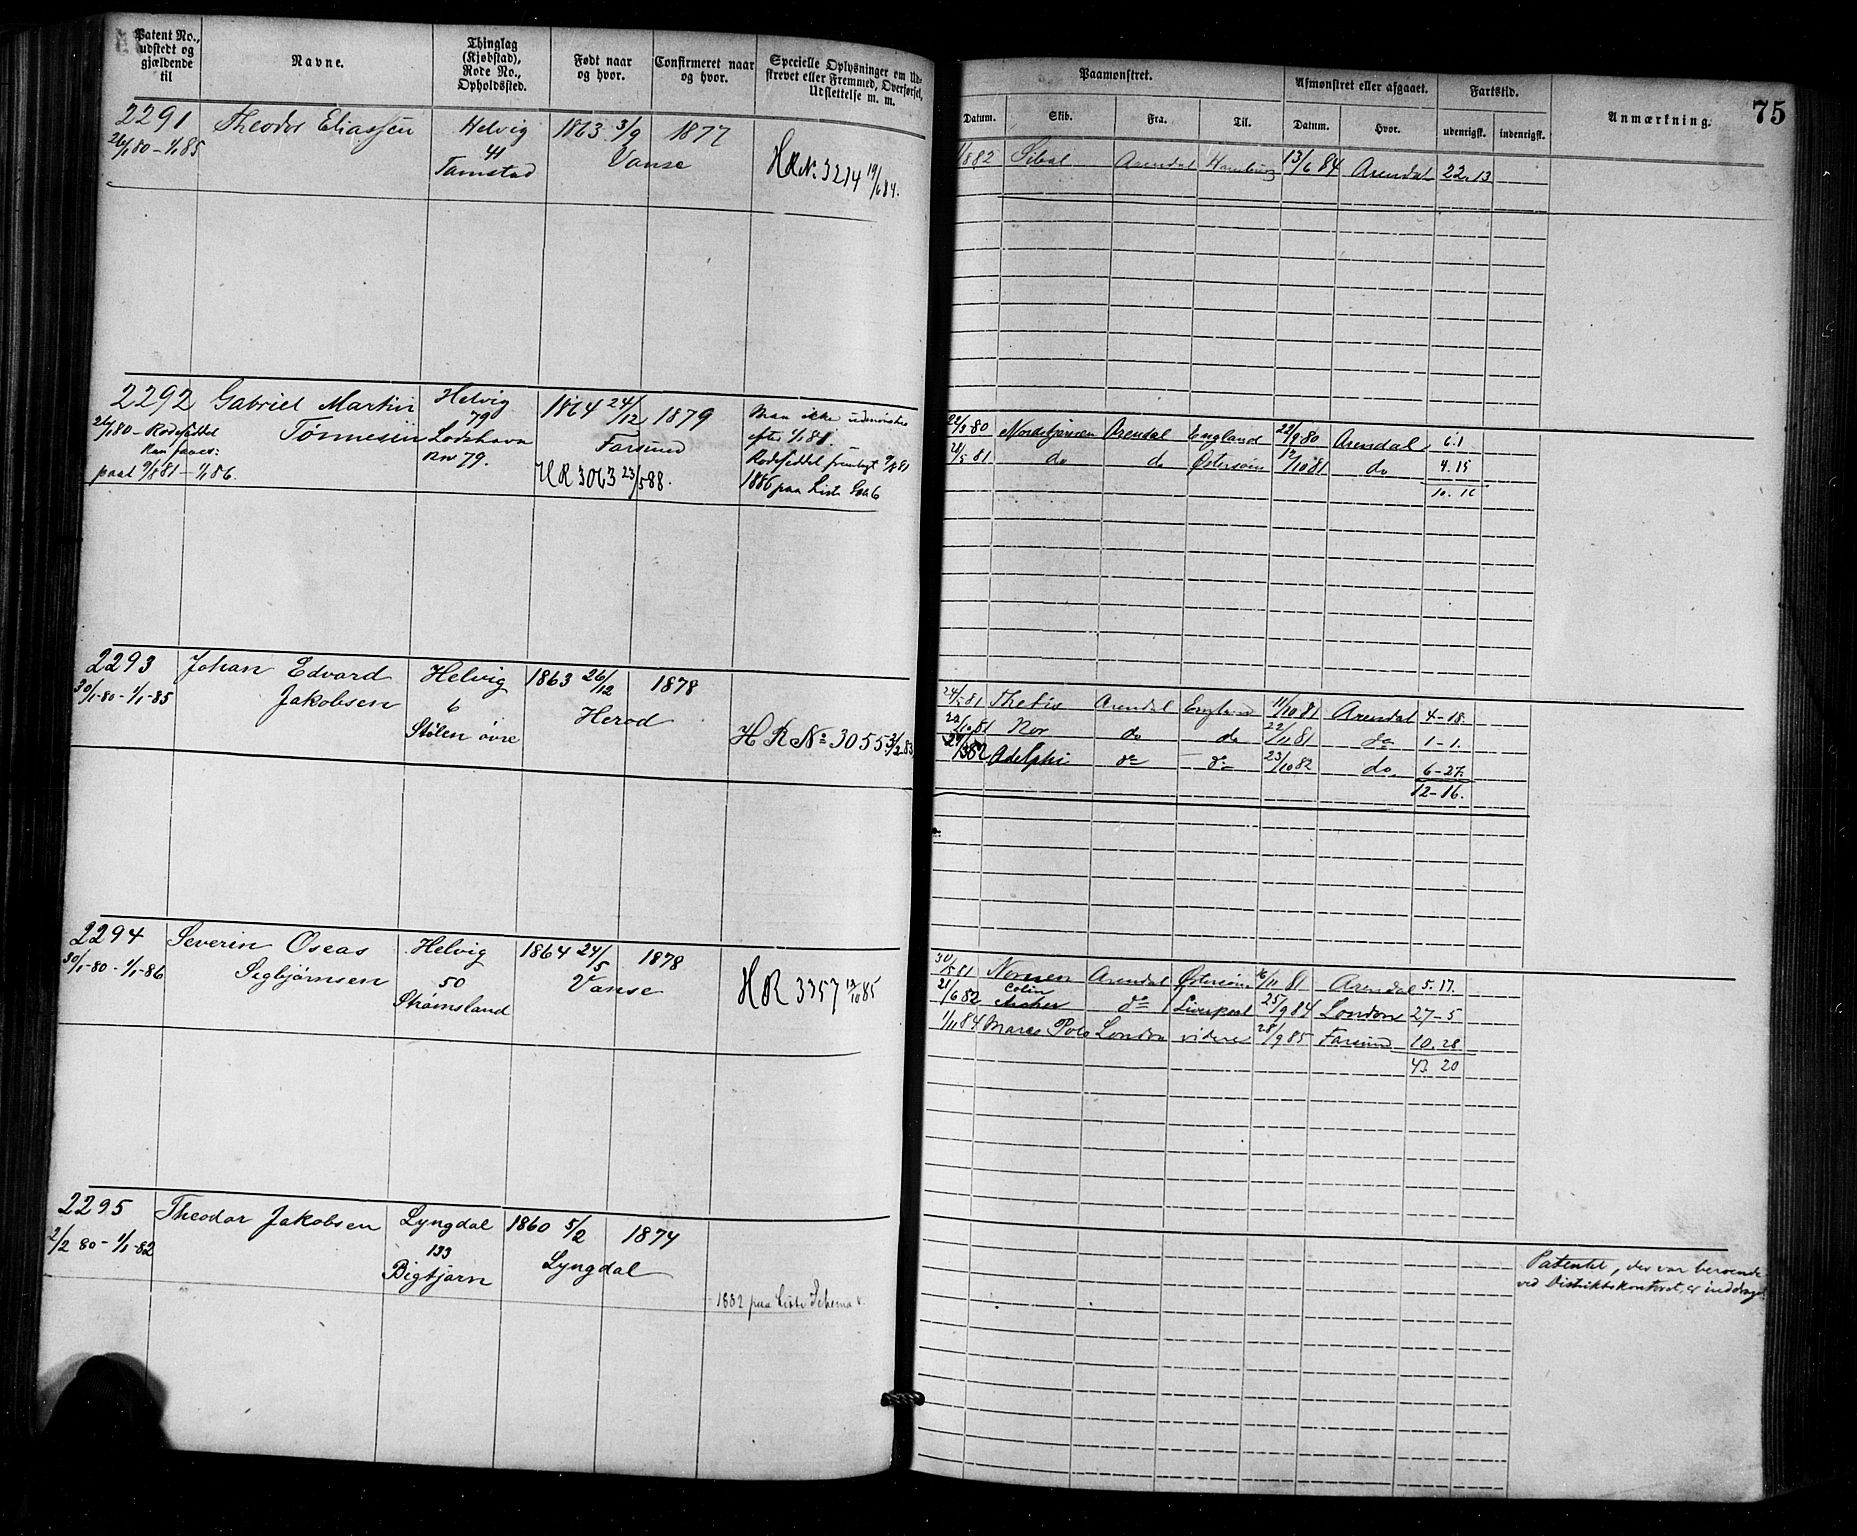 Patent No., udstedt og gjældende til
Navne.
Thinglag (Kjøbstad), Rode No., Opholdssted.
Født naar og hvor.
Confirmeret naar og hvor.
Specielle Oplysninger om Udskrevet eller Fremmed, Overførsel, Udslettelse m. m.
Paamønstret.
Afmønstret eller afgaaet.
Fartstid.
Anmærkning.
75
Datum.
Skib.
Fra.
Til.
Datum.
Hvor.
udenrigsk.
indenrigsk.
2291 Theodor Eliassen Helvig 1863 3/9 1877
26/1 80 - 1/1 85 41 Vanse
Tamstad
HR N. 3214 19/6 84.
82 Arendal Hamburg 13/6 84 Arendal 22.13
2292 Gabriel Martin Helvig 1864 24/12 1879
Tønnesen 79 Farsund
80 - Rodeseddel
Lodshavn
paat 9/8 81 - 1/1 86.
No 79.
HR 3063 23/5 88.
Maa ikke udmønstres
efter 1/1 81.
Rodeseddel fremlagt 9/8 81
1886 paa Liste
80 Arendal England 22/9 80 Arendal 6.1
81 do do Østersøen 12/10 81 do 4.15
10.16
2293 Johan Edvard Helvig 1863 26/12 1878
30/1-80 - 1/1-85 Jakobsen 6 Herod
Stølen øvre
HR No 3055 83
24/5 81 Thetis Arendal England 11/10 81 Arendal 4-18.
22/10 81 Nor do do 22/11 81 do 1-1.
Adelphi do do 23/10 82 do. 6-27.
12-16.
2294 Severin Oseas Helvig 1864 24/5 1878
30/1-80 - 1/1-86 Sigbjørnsen 50 Vanse
Strømsland
HR 3357 12/10 85
81 Normen Arendal Østersøen 16/11 81 Arendal 5.17.
21/6 82 Colin Archer do Liverpool 25/9 84 London 27-5
1/11 84 Marco Polo London videre 28/9 85 Farsund 10.28
43 20
2295 Theodor Jakobsen Lyngdal 1860 5/2 1874
2/2 80 - 1/1-82 133 Lyngdal
Bigtjørn
1882 paa Liste Schema
Patentet, der var beroende
ved Distriktskontoret, er inddraget